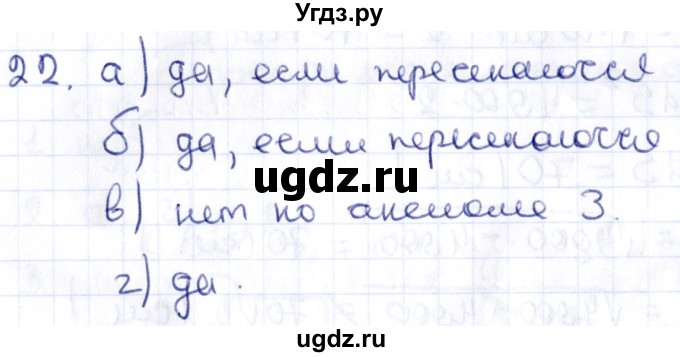 Угдз.ру
22. а) да, если пересекаются
б) да, если пересекаются
ugdz.ru
в) нет по аксиоме 3.
г) да.
ugdz.ru